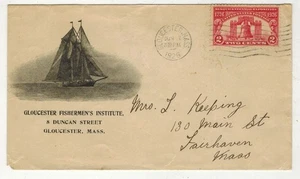 GLOUCESTER FISHERMEN'S INSTITUTE,
8 DUNCAN STREET
GLOUCESTER, MASS.
TWO CENTS
2 2
Mrs. L. Keeping
130 Main St
Fairhaven
Mass